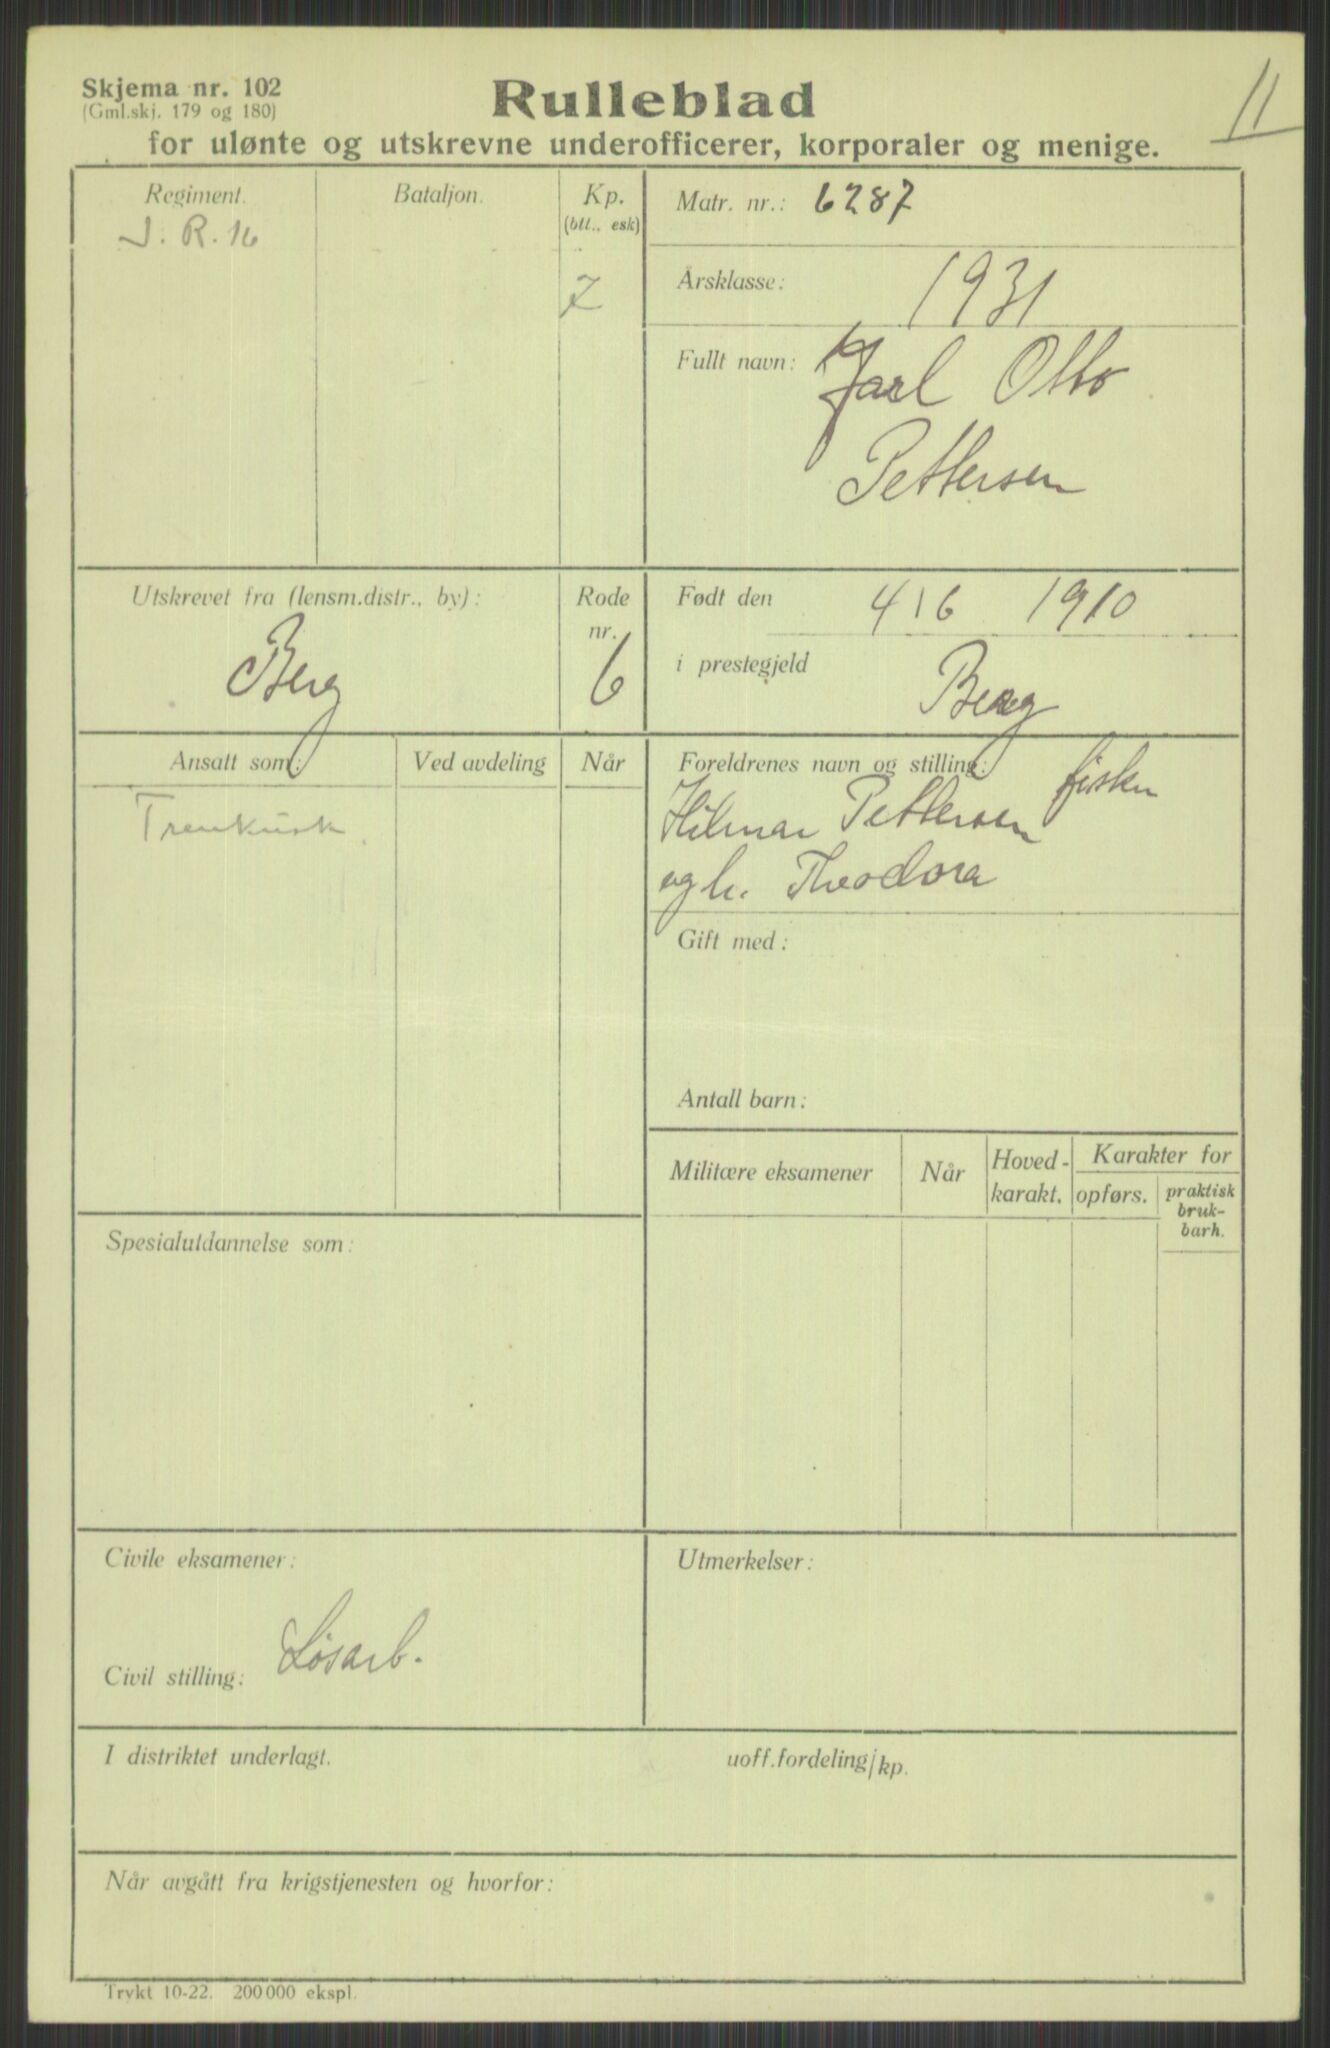 Skjema nr. 102
(Gml.skj. 179 og 180)
Rulleblad
for ulønte og utskrevne underofficerer, korporaler og menige.
11
Regiment.
J. R. 16
Bataljon.
Kp.
(btt., esk)
7
Matr. nr.: 6287
Årsklasse: 1931
Fullt navn: Jarl Otto
Pettersen
Utskrevet fra (lensm.distr., by):
Berg
Rode
nr.
6
Født den 4/6 1910
i prestegjeld Berg
Ansatt som:
Trenkusk
Ved avdeling
Når
Foreldrenes navn og stilling: fisker
Hilmar Pettersen
og h. Theodora
Gift med:
Antall barn:
Militære eksamener
Når
Hoved-
karakt.
Karakter for
opførs.
praktisk
bruk-
barh.
Spesialutdannelse som:
Civile eksamener:
Civil stilling: Løsarb.
Utmerkelser:
I distriktet underlagt.
uoff.fordeling/kp.
Når avgått fra krigstjenesten og hvorfor:
Trykt 10-22. 200000 ekspl.